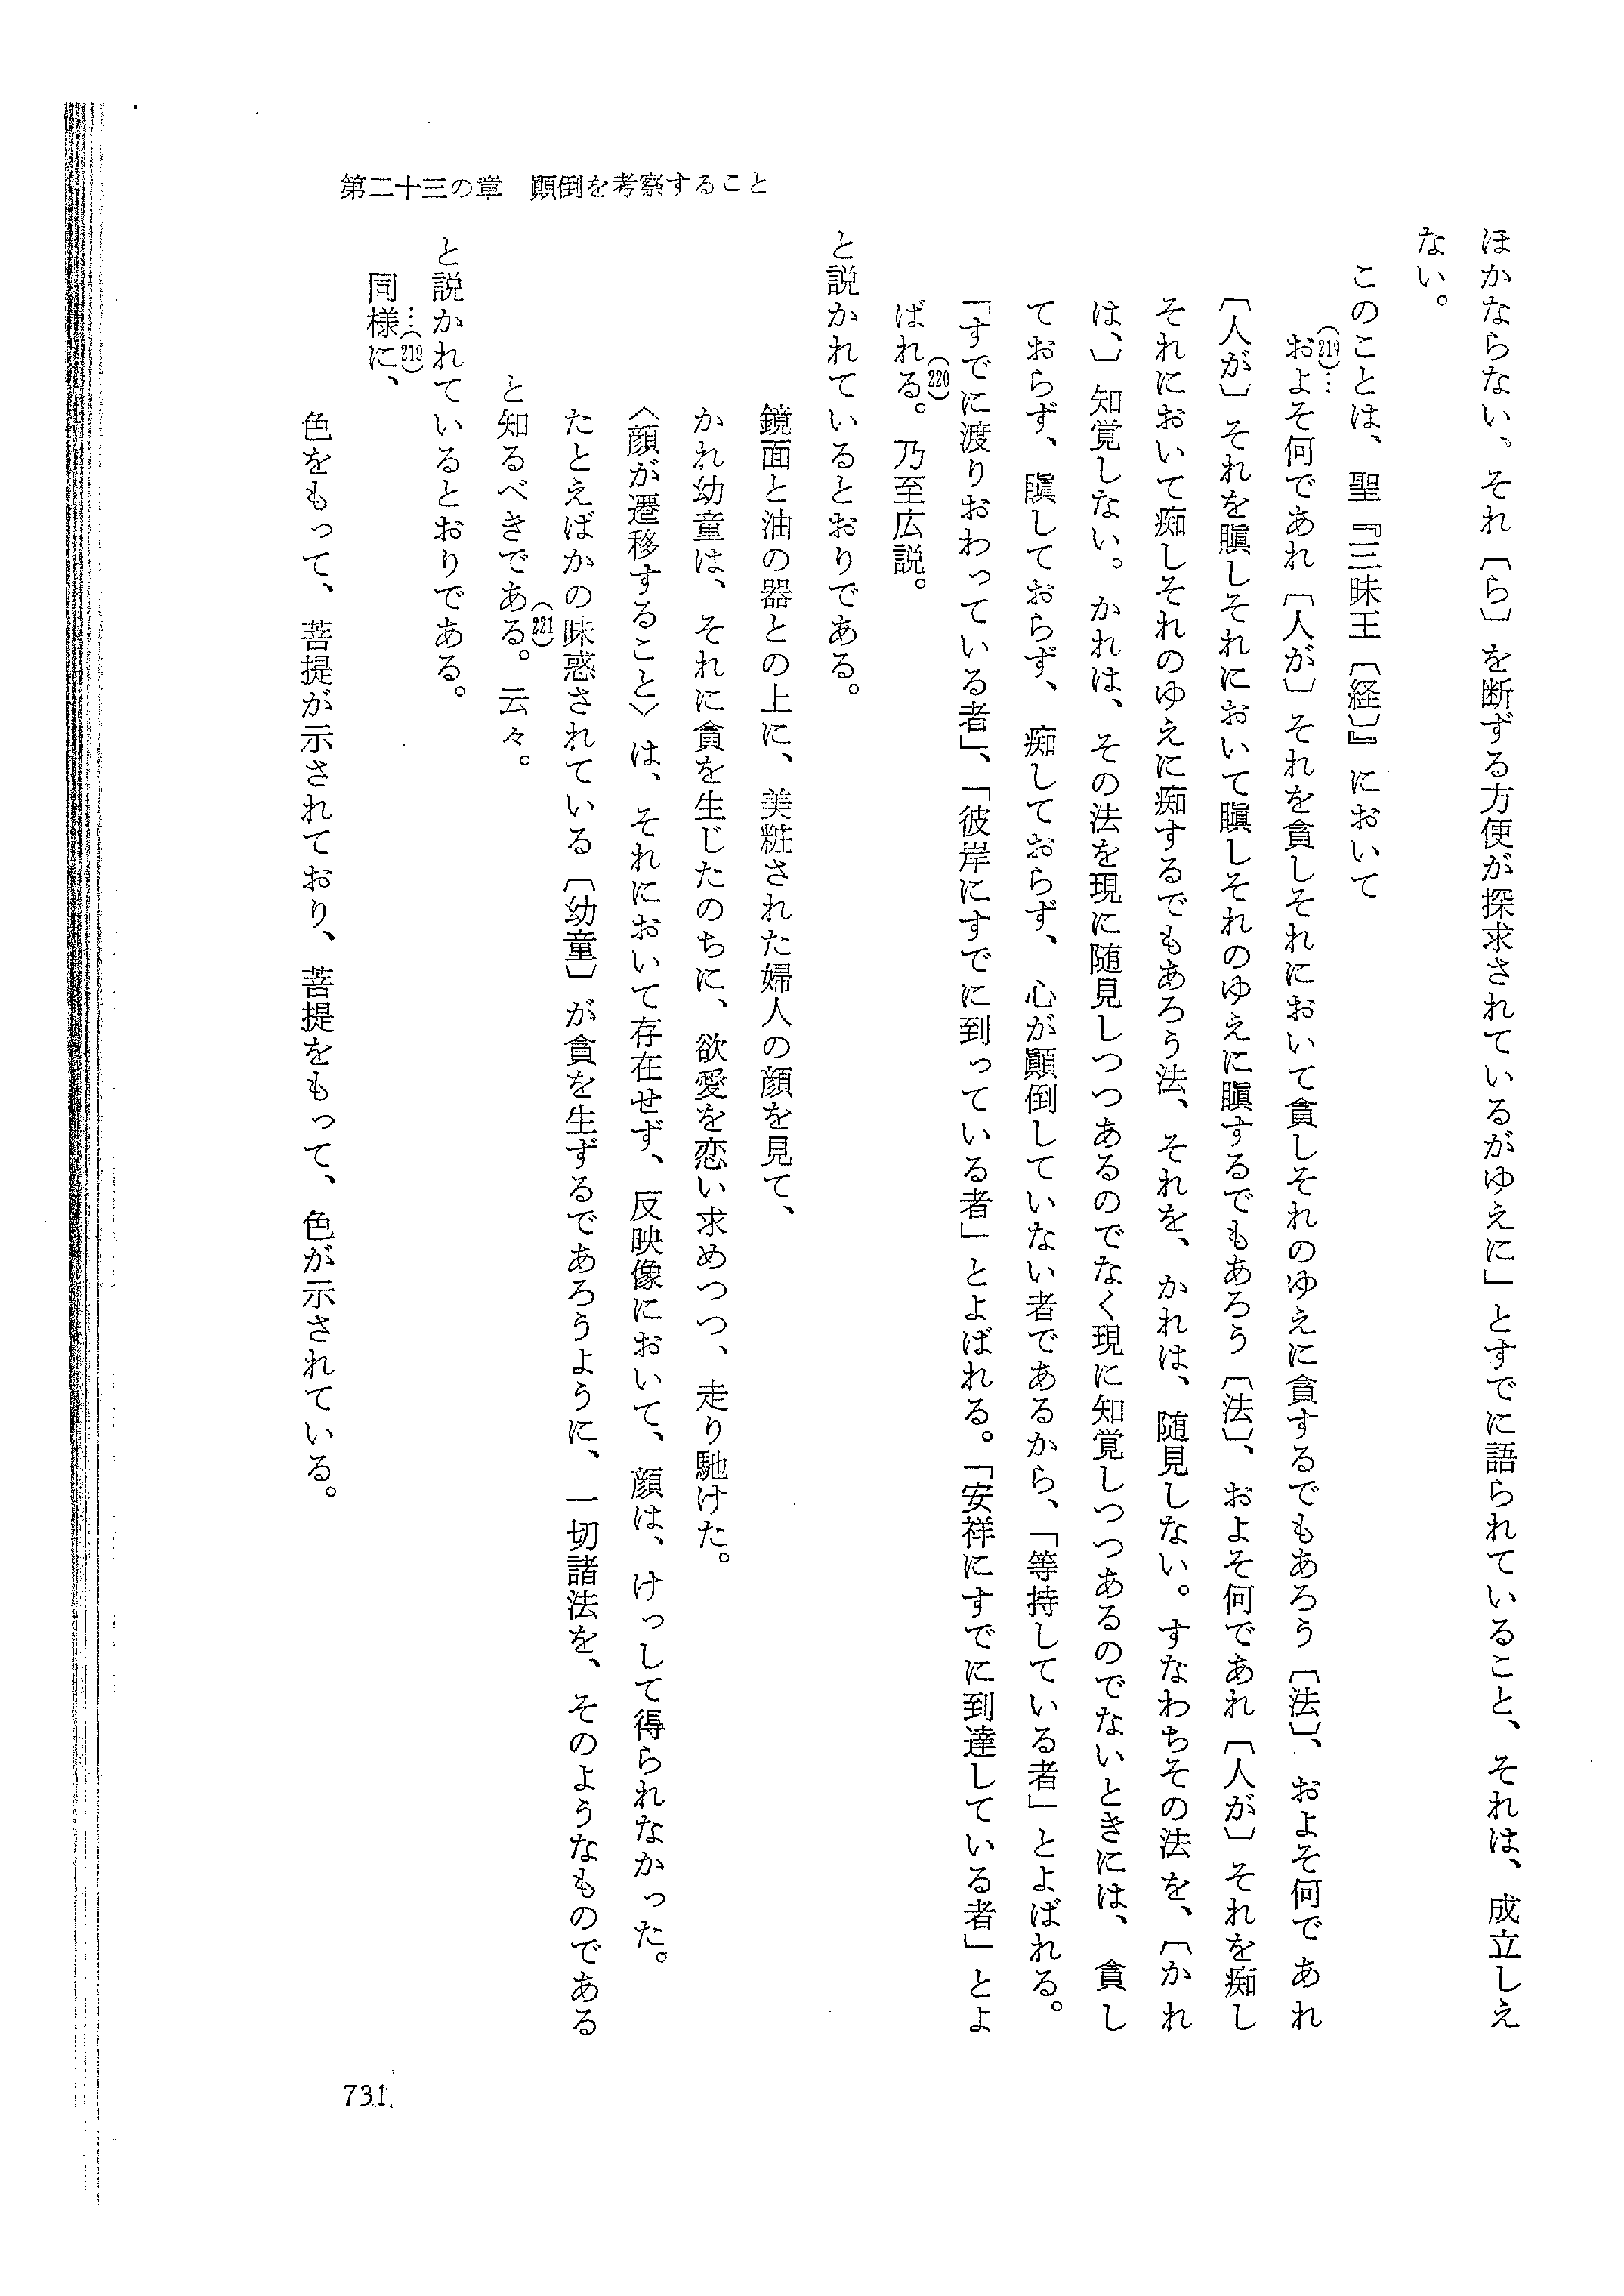 第二十三の章　顚倒を考察すること
ほかならない。それ〔ら〕を断ずる方便が探求されているがゆえに」とすでに語られていること、それは、成立しえ
ない。
このことは、聖『三昧王〔経〕』において
(219)…
およそ何であれ〔人が〕それを貪しそれにおいて貪しそれのゆえに貪するでもあろう〔法〕、およそ何であれ
〔人が〕それを瞋しそれにおいて瞋しそれのゆえに瞋するでもあろう〔法〕、およそ何であれ〔人が〕それを痴し
それにおいて痴しそれのゆえに痴するでもあろう法、それを、かれは、随見しない。すなわちその法を、〔かれ
は、〕知覚しない。かれは、その法を現に随見しつつあるのでなく現に知覚しつつあるのでないときには、貪し
ておらず、瞋しておらず、痴しておらず、心が顚倒していない者であるから、「等持している者」とよばれる。
「すでに渡りおわっている者」、「彼岸にすでに到っている者」とよばれる。「安祥にすでに到達している者」とよ
(220)
ばれる。乃至広説。
と説かれているとおりである。
鏡面と油の器との上に、美粧された婦人の顔を見て、
かれ幼童は、それに貪を生じたのちに、欲愛を恋い求めつつ、走り馳けた。
〈顔が遷移すること〉は、それにおいて存在せず、反映像において、顔は、けっして得られなかった。
たとえばかの昧惑されている〔幼童〕が貪を生ずるであろうように、一切諸法を、そのようなものである
(221)
と知るべきである。云々。
と説かれているとおりである。
…(219)
同様に、
色をもって、菩提が示されており、菩提をもって、色が示されている。
731